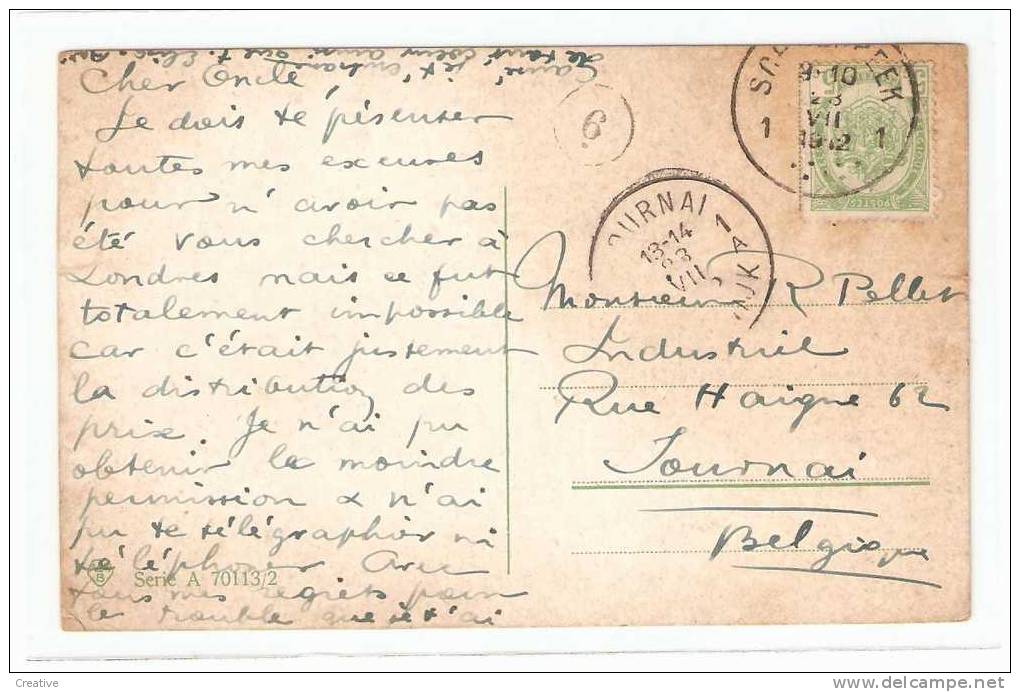 Cher Oncle
Je dois te présenter
toutes mes excuses
pour n'avoir pas
été vous chercher à
Londres mais ce fut
totalement impossible
car c'était justement
la distribution des
prix. Je n'ai pu
obtenir la moindre
permission & n'ai
pu te télégraphier ni
téléphoner Avec
tous mes regrets pour
le trouble que je t'ai
causé je t'
6
1 1
9-10
VII
1912
POSTES
OURNAI 1
13-14
VII
Monsieur R Pellet
Industriel
Rue Haigne 62
Tournai
Belgique
B
Serie A 70113/2
Creative
www.delcampe.net